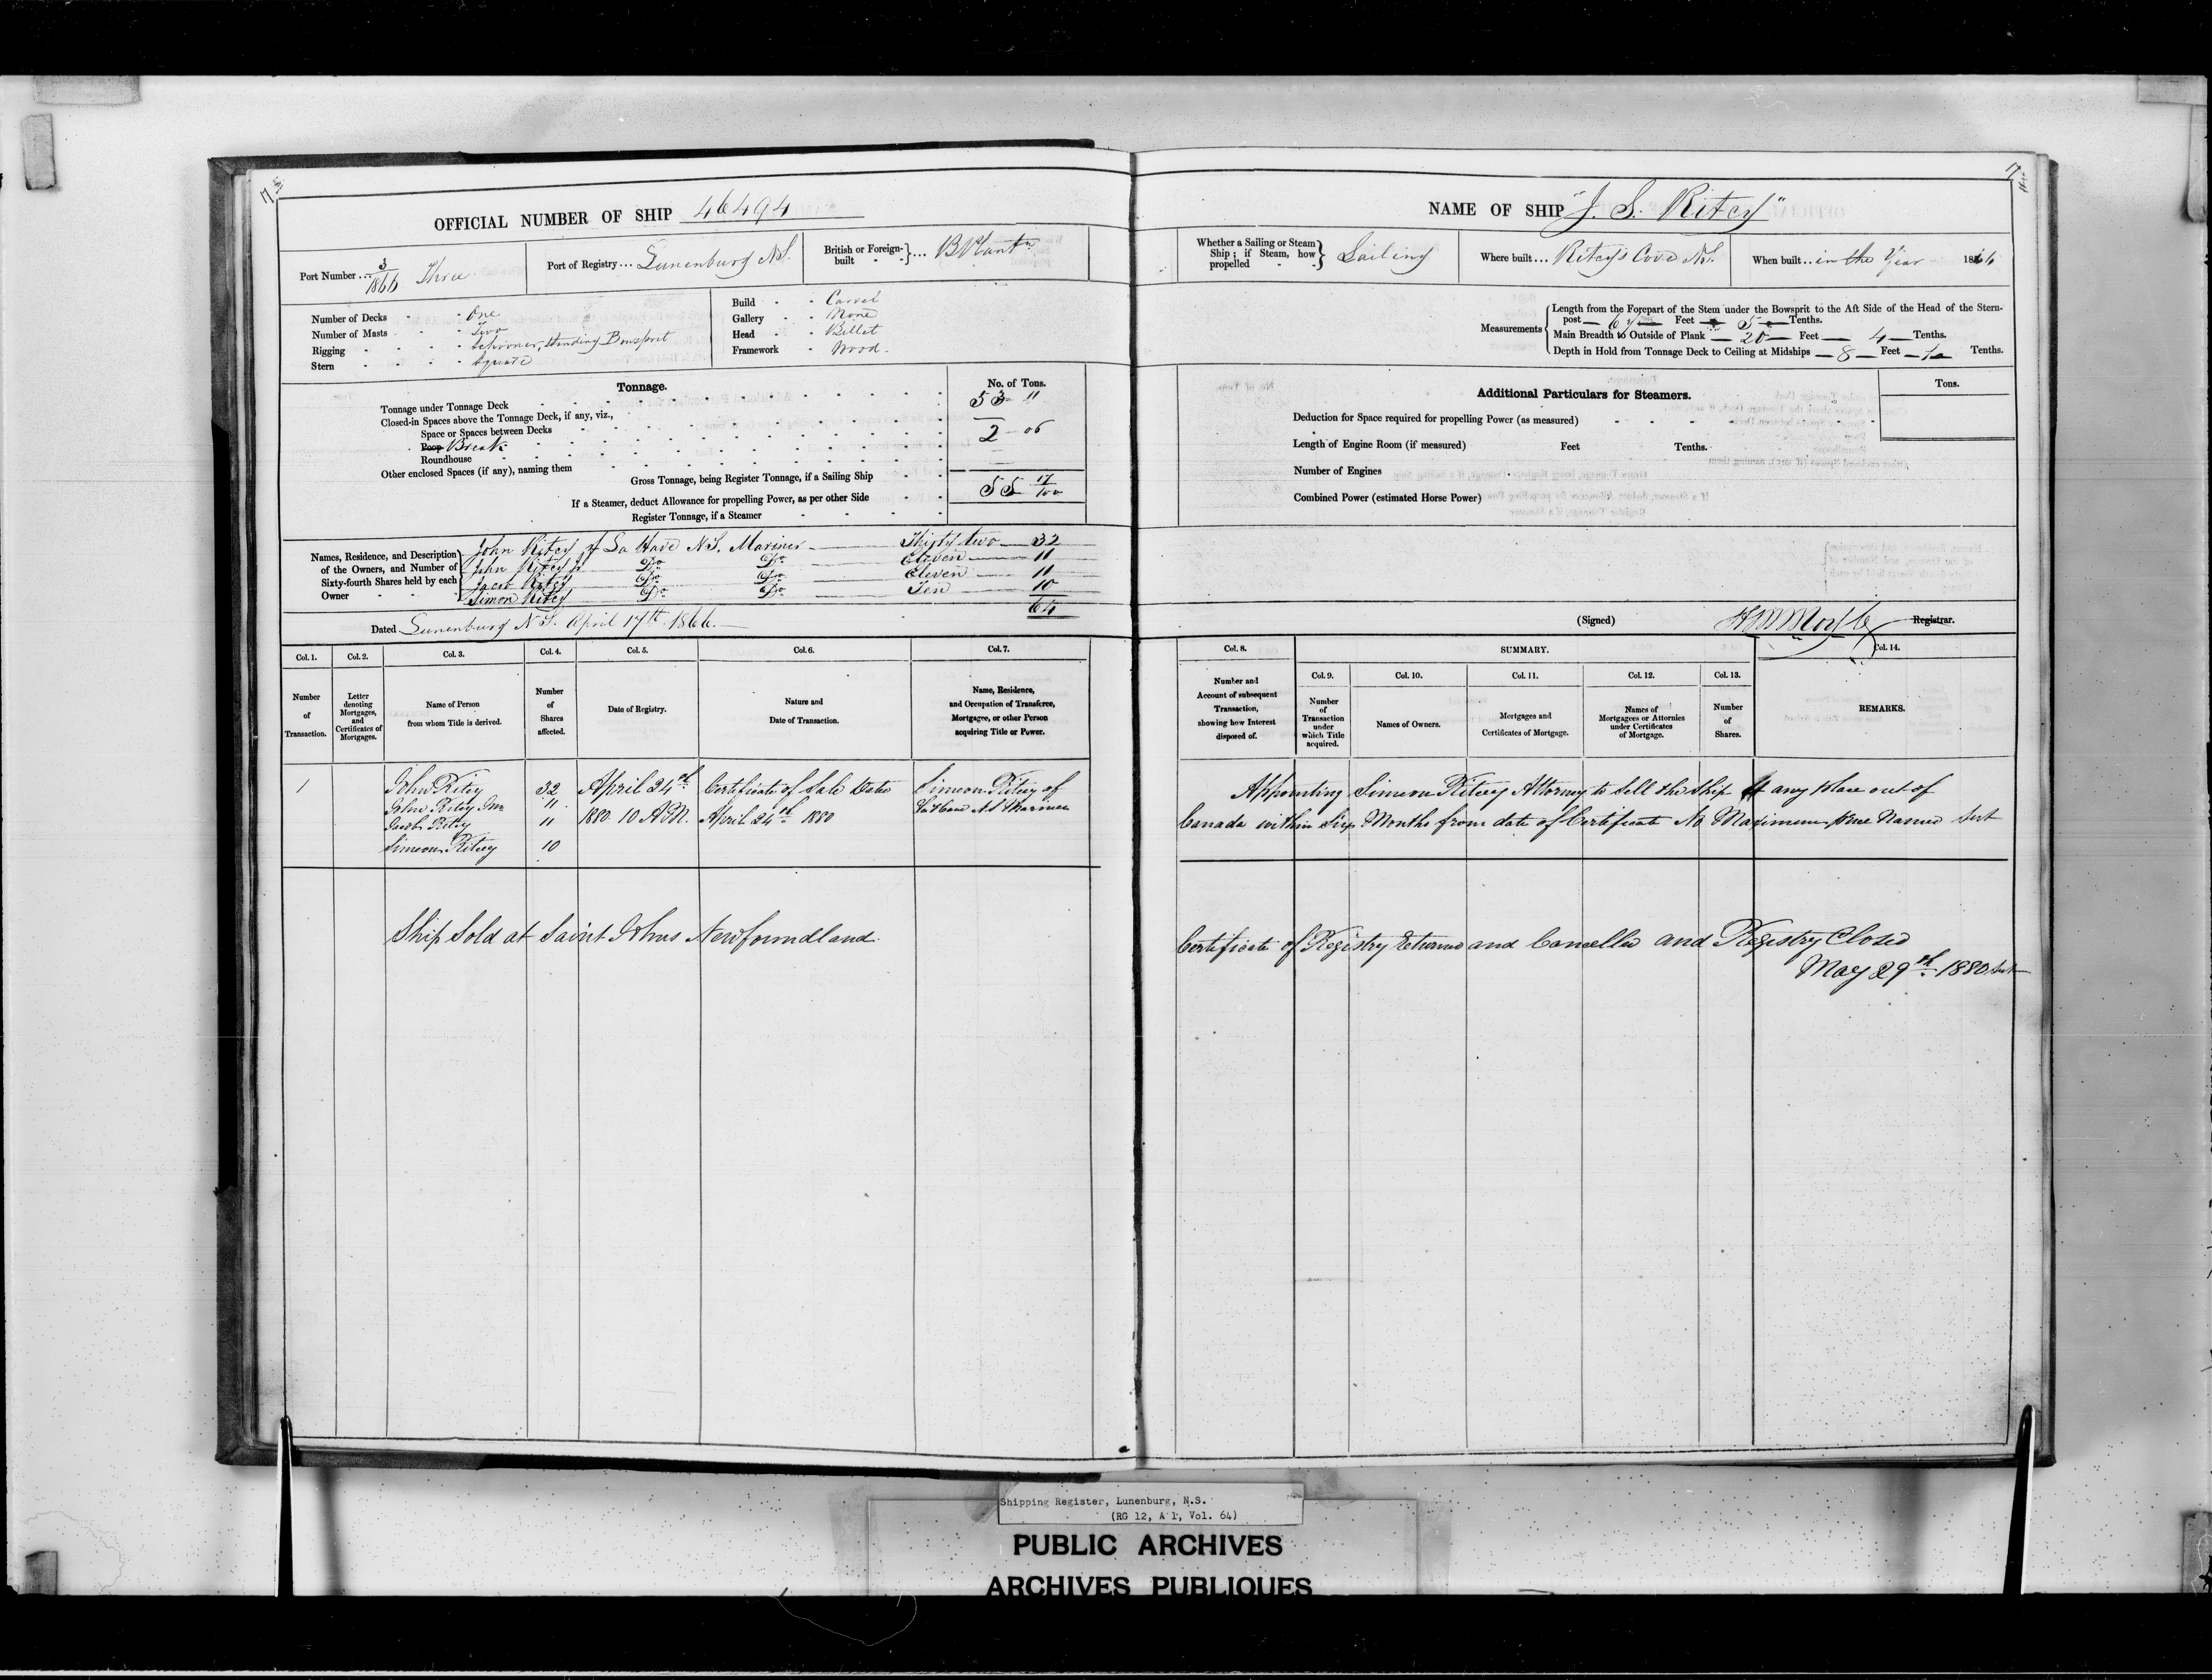 OFFICIAL NUMBER OF SHIP 46494
Port Number ... 3/1866 Three
Port of Registry ... Lunenburg N.S.
British or Foreign-built ... B Plantn
Number of Decks One
Number of Masts Two
Rigging Schooner, Standing Bowsprit
Stern Square
Build Carvel
Gallery None
Head Billet
Framework Wood.
Tonnage.
No. of Tons.
Tonnage under Tonnage Deck 53 11
Closed-in Spaces above the Tonnage Deck, if any, viz.,
Space or Spaces between Decks
Poop Break 2 06
Roundhouse
Other enclosed Spaces (if any), naming them
Gross Tonnage, being Register Tonnage, if a Sailing Ship 55 17/100
If a Steamer, deduct Allowance for propelling Power, as per other Side
Register Tonnage, if a Steamer
Names, Residence, and Description of the Owners, and Number of Sixty-fourth Shares held by each Owner
John Ritcy of La Have N.S. Mariner Thirty two 32
John Ritcy Jr Do Do Eleven 11
Jacob Ritcy Do Do Eleven 11
Simon Ritcy Do Do Ten 10
64
Dated Lunenburg N.S. April 17th 1866.
Col. 1. Col. 2. Col. 3. Col. 4. Col. 5. Col. 6. Col. 7.
Number of Transaction.
Letter denoting Mortgages, and Certificates of Mortgages.
Name of Person from whom Title is derived.
Number of Shares affected.
Date of Registry.
Nature and Date of Transaction.
Name, Residence, and Occupation of Transferee, Mortgagee, or other Person acquiring Title or Power.
1 John Ritcey 32 April 24th Certificate of Sale Dated Simeon Ritcey of
John Ritcey Jnr 11 1880 10 A.M. April 24th 1880 LaHave N.S. Mariner
Jacob Ritcey 11
Simeon Ritcey 10
Ship Sold at Saint Johns Newfoundland.
NAME OF SHIP "J. S. Ritcy"
Whether a Sailing or Steam Ship; if Steam, how propelled Sailing
Where built ... Ritcy's Cove N.S.
When built .. in the Year 1866
Measurements
Length from the Forepart of the Stem under the Bowsprit to the Aft Side of the Head of the Stern-
post 67 Feet 5 Tenths.
Main Breadth to Outside of Plank 20 Feet 4 Tenths.
Depth in Hold from Tonnage Deck to Ceiling at Midships 8 Feet Tenths.
Additional Particulars for Steamers.
Tons.
Deduction for Space required for propelling Power (as measured)
Length of Engine Room (if measured) Feet Tenths.
Number of Engines
Combined Power (estimated Horse Power)
(Signed) Registrar.
Col. 8. SUMMARY. Col. 14.
Col. 9. Col. 10. Col. 11. Col. 12. Col. 13.
Number and Account of subsequent Transaction, showing how Interest disposed of.
Number of Transaction under which Title acquired.
Names of Owners.
Mortgages and Certificates of Mortgage.
Names of Mortgagees or Attornies under Certificates of Mortgage.
Number of Shares.
REMARKS.
Appointing Simeon Ritcey Attorney to sell the Ship at any place out of
Canada within Six Months from date of Certificate No Maximum price Named
Certificate of Registry Returned and Cancelled and Registry Closed
May 29th 1880
Shipping Register, Lunenburg, N.S.
(RG 12, A 1, Vol. 64)
PUBLIC ARCHIVES
ARCHIVES PUBLIQUES